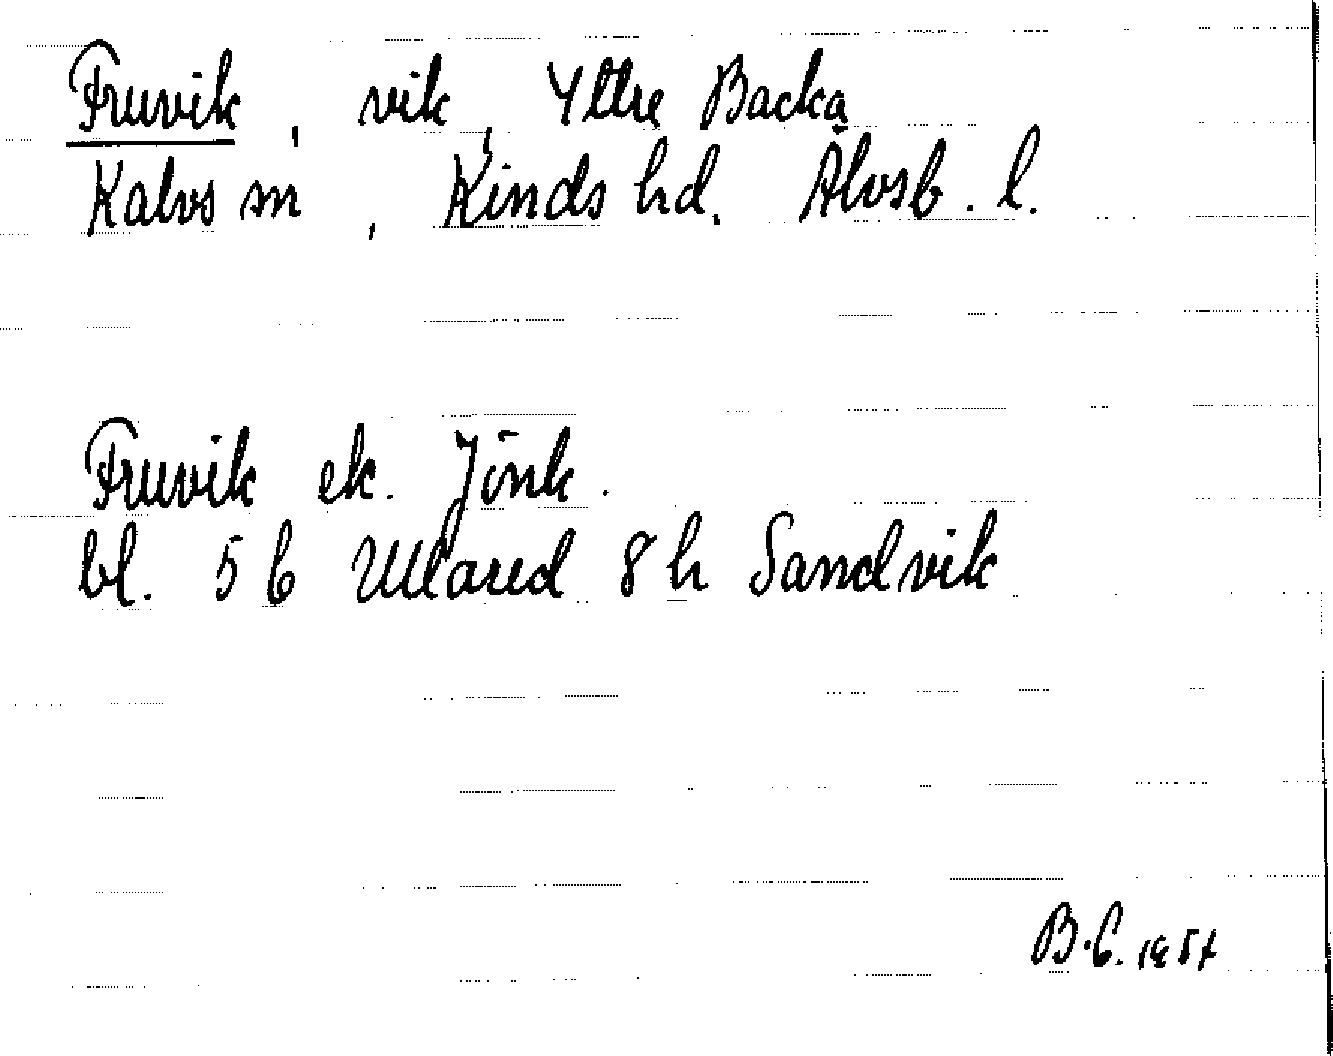 Fruvik, vik, Yttre Backa
Kalvs sn, Kinds hd. Älvsb. l.
Fruvik ek. Jönk.
bl. 5 b Ullared 8 h Sandvik
B.C. 1957